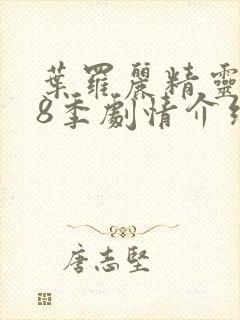 葉羅麗精靈
8季劇情介紹
唐志堅